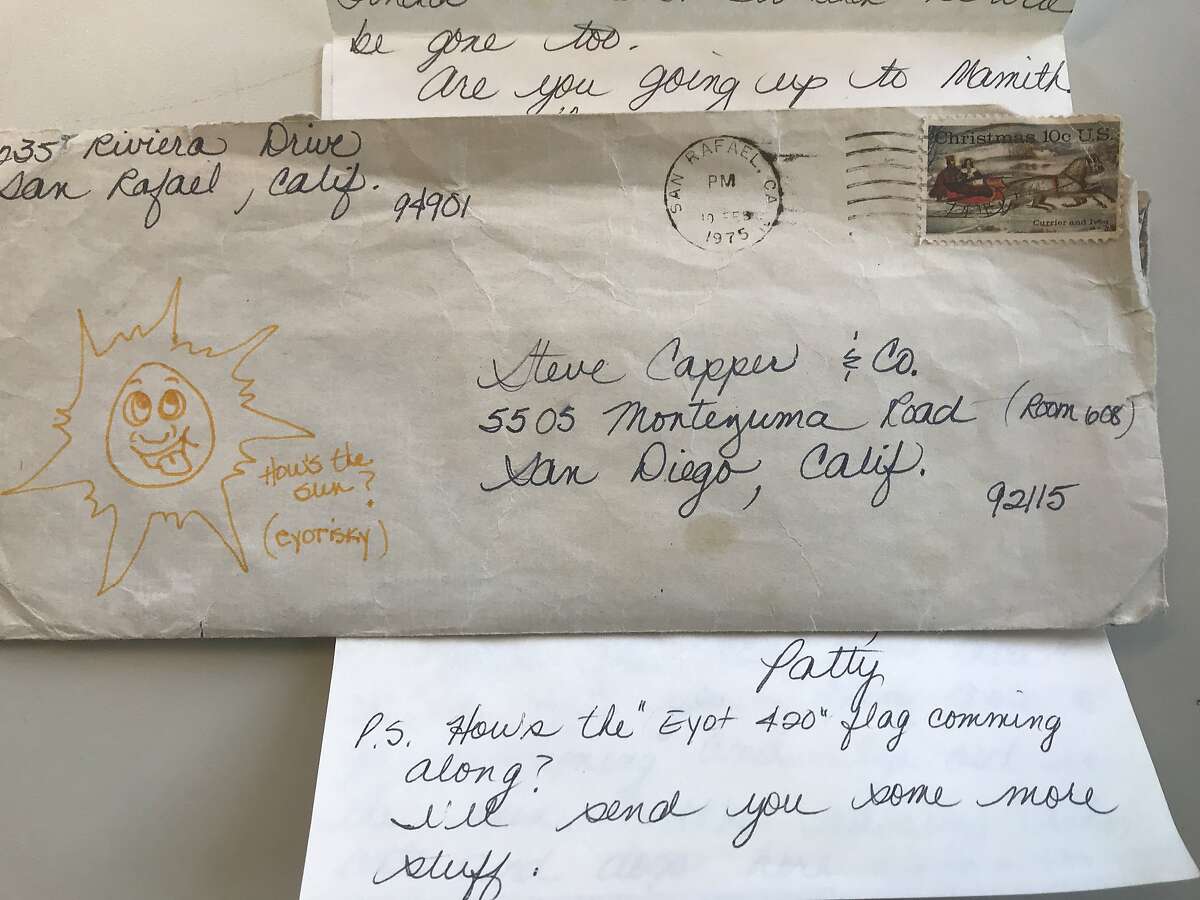 be gone too.
Are you going up to Mamith
235 Riviera Drive
San Rafael, Calif.
94901
SAN RAFAEL, CA
PM
10 FEB
1975
Christmas 10c U.S.
Currier and Ives
Steve Capper & Co.
5505 Montezuma Road (Room 608)
San Diego, Calif.
92115
How's the
sun?
(eyorisky)
Patty
P.S. How's the "Eyot 420" flag comming
along?
I'll send you some more
stuff.